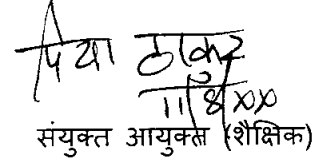 प्रिया ठाकुर
11/8/xx
संयुक्त आयुक्त (शैक्षिक)